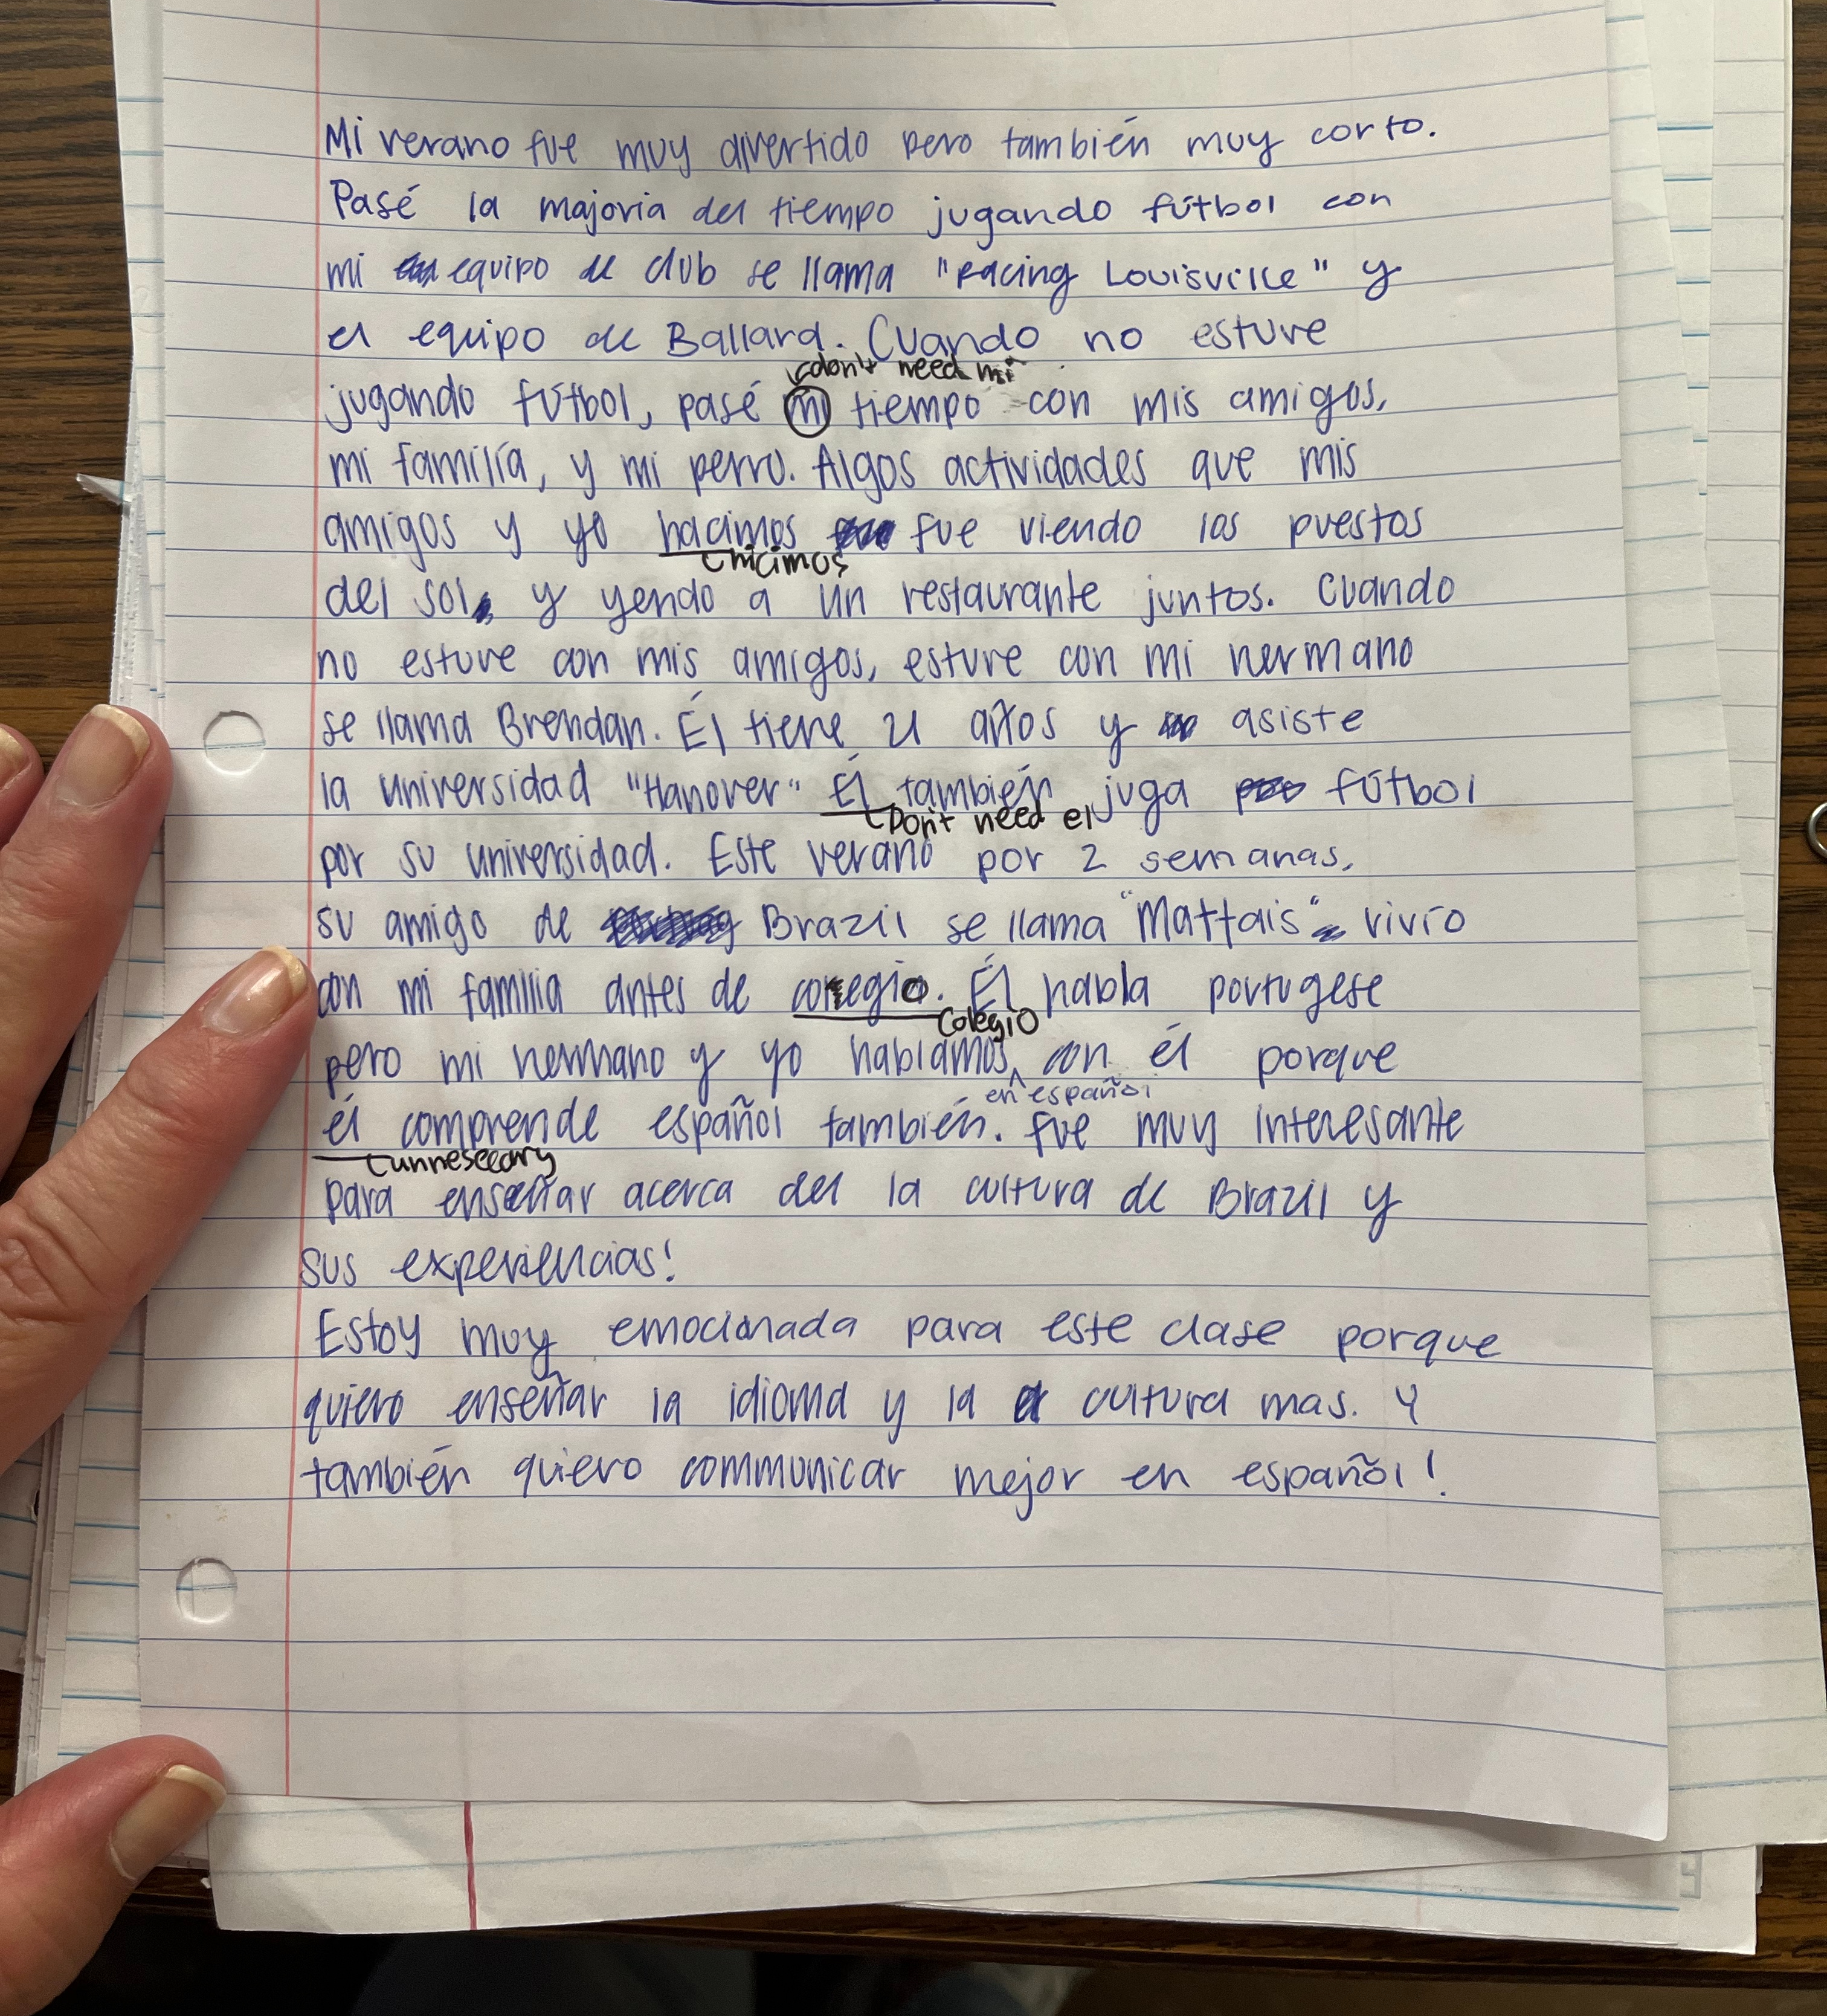 Mi verano fue muy divertido pero también muy corto.
Pasé la majoria del tiempo jugando fútbol con
mi equipo de club se llama "Racing Louisville" y
el equipo de Ballard. Cuando no estuve
don't need mi
jugando fútbol, pasé mi tiempo con mis amigos,
mi familía, y mi perro. Algos actividades que mis
amigos y yo hacimos fue viendo los puestos
hicimos
del sol, y yendo a un restaurante juntos. Cuando
no estuve con mis amigos, estuve con mi hermano
se llama Brendan. Él tiene 21 años y asiste
la universidad "Hanover" Él también juga fútbol
Don't need el
por su universidad. Este verano por 2 semanas,
su amigo de Brazil se llama "Mattais" vivío
con mi familia antes de coregio. Él habla portugese
colegio
pero mi hermano y yo hablamos con él porque
en español
él comprende español también. Fue muy interesante
unnesecary
para enseñar acerca del la cultura de Brazil y
sus experiencias!
Estoy muy emocionada para este clase porque
quiero enseñar la idioma y la cultura mas. Y
también quiero communicar mejor en español!